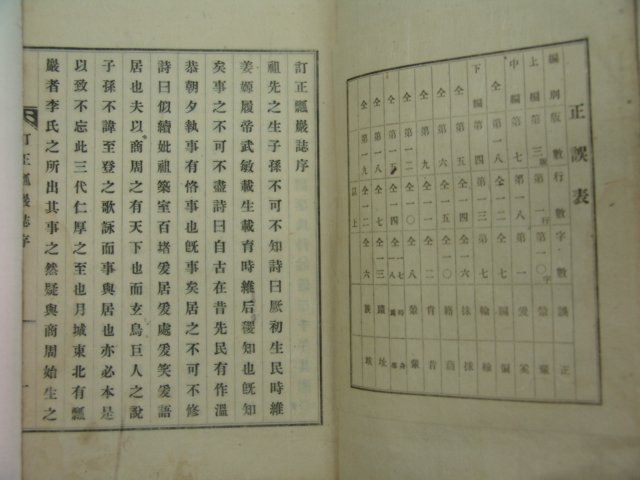 正誤表
編別 版數 行數 字數 誤 正
上編 第三版 第一行 第一〇字
中編 第七 第八 第一
全 第一八 全一二 全七
下編 第四 第一三 第七
全 第五
全 第六 全一五
全 第九 全一四 昔
全 第一二 全一〇 全八
全 第一五 全一四
全 第一八 全一二 全一三 址
全 第一九 全一二 全六
以上
訂正瓢巖誌序
祖先之生子孫不可不知詩曰厥初生民時維
姜嫄履帝武敏載生載育時維后稷知也旣知
矣事之不可不盡詩曰自古在昔先民有作溫
恭朝夕執事有恪事也旣事矣居之不可不修
詩曰似續妣祖築室百堵爰居爰處爰笑爰語
居也夫以商周之有天下也而玄鳥巨人之說
子孫不諱至登之歌詠而事與居也亦必本是
以致不忘此三代仁厚之至也月城東北有瓢
巖者李氏之所出其事之然疑與商周始生之
訂正瓢巖誌序 一